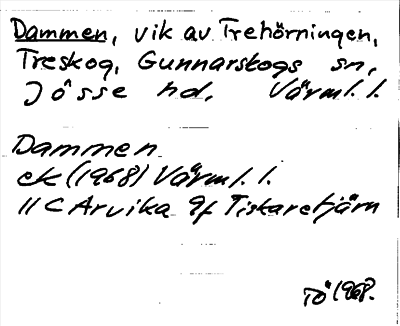 Dammen, vik av Trehörningen,
Treskog, Gunnarskogs sn,
Jösse hd, Värml. l.
Dammen
ek (1968) Värml. l.
11 C Arvika 9f Tiskaretjärn
Tö 1968.